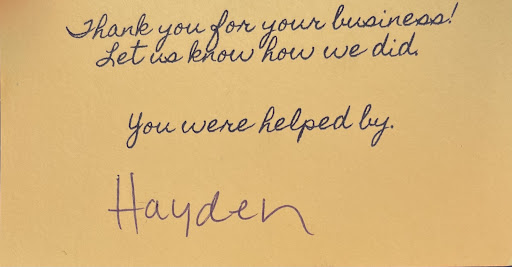 Thank you for your business!
Let us know how we did.
You were helped by.
Hayden